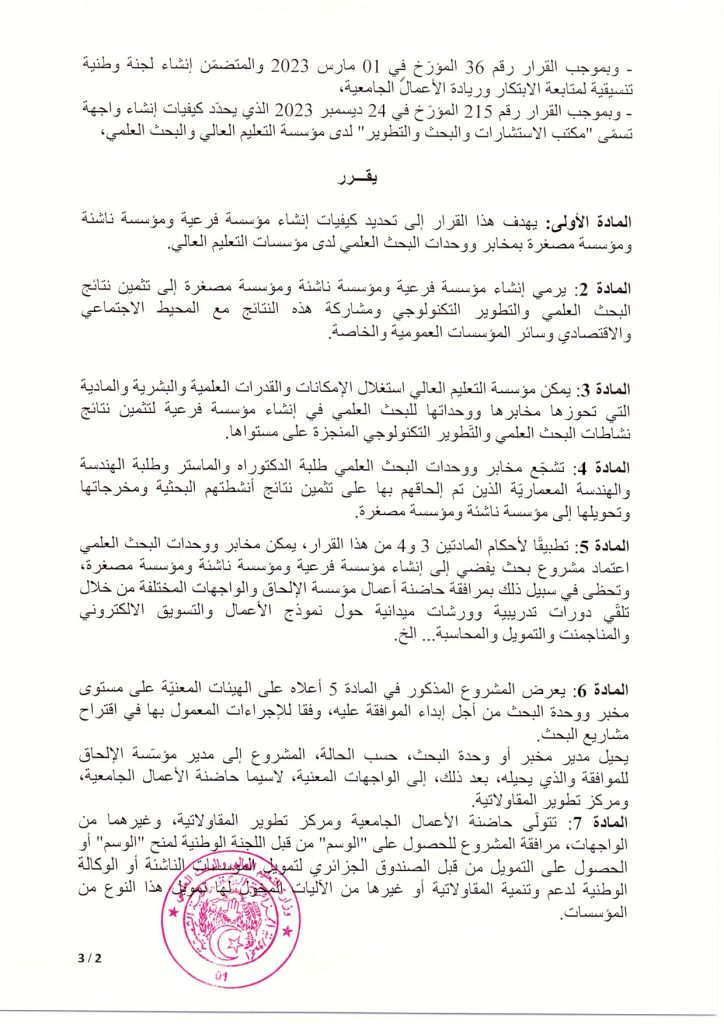 - وبموجب القرار رقم 36 المؤرّخ في 01 مارس 2023 والمتضمّن إنشاء لجنة وطنية
تنسيقية لمتابعة الابتكار وريادة الأعمال الجامعية،
- وبموجب القرار رقم 215 المؤرّخ في 24 ديسمبر 2023 الذي يحدّد كيفيات إنشاء واجهة
تسمّى "مكتب الاستشارات والبحث والتطوير" لدى مؤسسة التعليم العالي والبحث العلمي،
يقـــرر
المادة الأولى: يهدف هذا القرار إلى تحديد كيفيات إنشاء مؤسسة فرعية ومؤسسة ناشئة
ومؤسسة مصغرة بمخابر ووحدات البحث العلمي لدى مؤسسات التعليم العالي.
المادة 2: يرمي إنشاء مؤسسة فرعية ومؤسسة ناشئة ومؤسسة مصغرة إلى تثمين نتائج
البحث العلمي والتطوير التكنولوجي ومشاركة هذه النتائج مع المحيط الاجتماعي
والاقتصادي وسائر المؤسسات العمومية والخاصة.
المادة 3: يمكن مؤسسة التعليم العالي استغلال الإمكانات والقدرات العلمية والبشرية والمادية
التي تحوزها مخابرها ووحداتها للبحث العلمي في إنشاء مؤسسة فرعية لتثمين نتائج
نشاطات البحث العلمي والتّطوير التكنولوجي المنجزة على مستواها.
المادة 4: تشجّع مخابر ووحدات البحث العلمي طلبة الدكتوراه والماستر وطلبة الهندسة
والهندسة المعماريّة الذين تم إلحاقهم بها على تثمين نتائج أنشطتهم البحثية ومخرجاتها
وتحويلها إلى مؤسسة ناشئة ومؤسسة مصغرة.
المادة 5: تطبيقًا لأحكام المادتين 3 و4 من هذا القرار، يمكن مخابر ووحدات البحث العلمي
اعتماد مشروع بحث يفضي إلى إنشاء مؤسسة فرعية ومؤسسة ناشئة ومؤسسة مصغرة،
وتحظى في سبيل ذلك بمرافقة حاضنة أعمال مؤسسة الإلحاق والواجهات المختلفة من خلال
تلقّي دورات تدريبية وورشات ميدانية حول نموذج الأعمال والتسويق الالكتروني
والمناجمنت والتمويل والمحاسبة... الخ.
المادة 6: يعرض المشروع المذكور في المادة 5 أعلاه على الهيئات المعنيّة على مستوى
مخبر ووحدة البحث من أجل إبداء الموافقة عليه، وفقا للإجراءات المعمول بها في اقتراح
مشاريع البحث.
يحيل مدير مخبر أو وحدة البحث، حسب الحالة، المشروع إلى مدير مؤسّسة الإلحاق
للموافقة والذي يحيله، بعد ذلك، إلى الواجهات المعنية، لاسيما حاضنة الأعمال الجامعية،
ومركز تطوير المقاولاتية.
المادة 7: تتولّى حاضنة الأعمال الجامعية ومركز تطوير المقاولاتية، وغيرهما من
الواجهات، مرافقة المشروع للحصول على "الوسم" من قبل اللجنة الوطنية لمنح "الوسم" أو
الحصول على التمويل من قبل الصندوق الجزائري لتمويل المؤسسات الناشئة أو الوكالة
الوطنية لدعم وتنمية المقاولاتية أو غيرها من الآليات المخول لها تمويل هذا النوع من
المؤسسات.
01
3 / 2